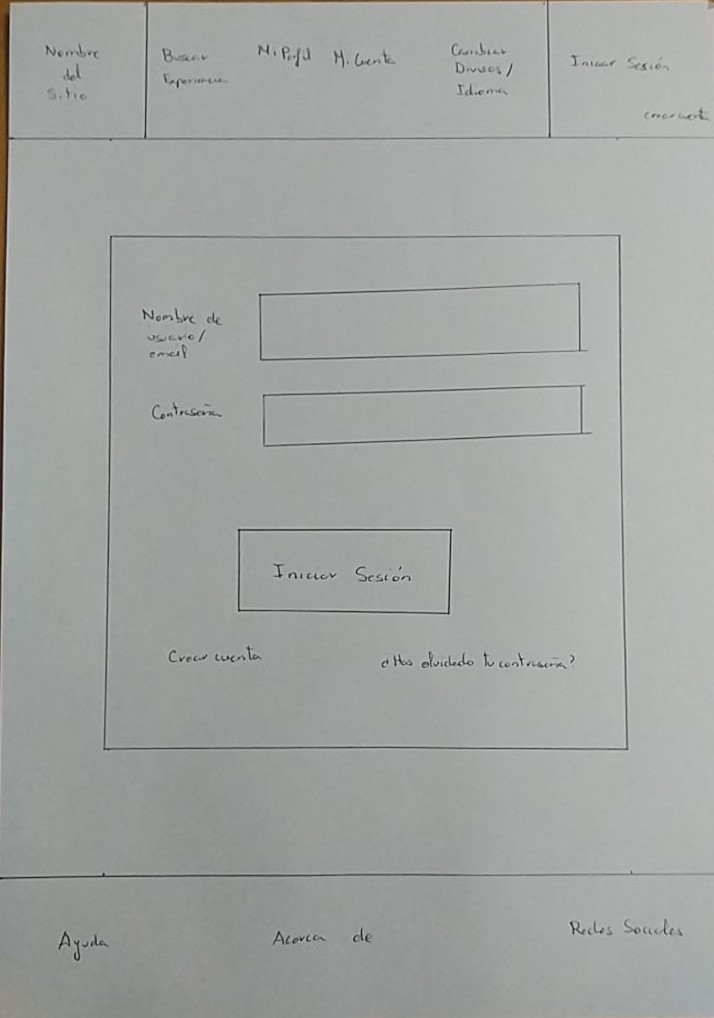 Nombre
del
Sitio
Buscar
Experiencia
Mi Perfil
Mi Cuenta
Cambiar
Divisas/
Idioma
Iniciar Sesión
crear cuenta
Nombre de
usuario/
email
Contraseña
Iniciar Sesión
Crear cuenta
¿Has olvidado tu contraseña?
Ayuda
Acerca de
Redes Sociales